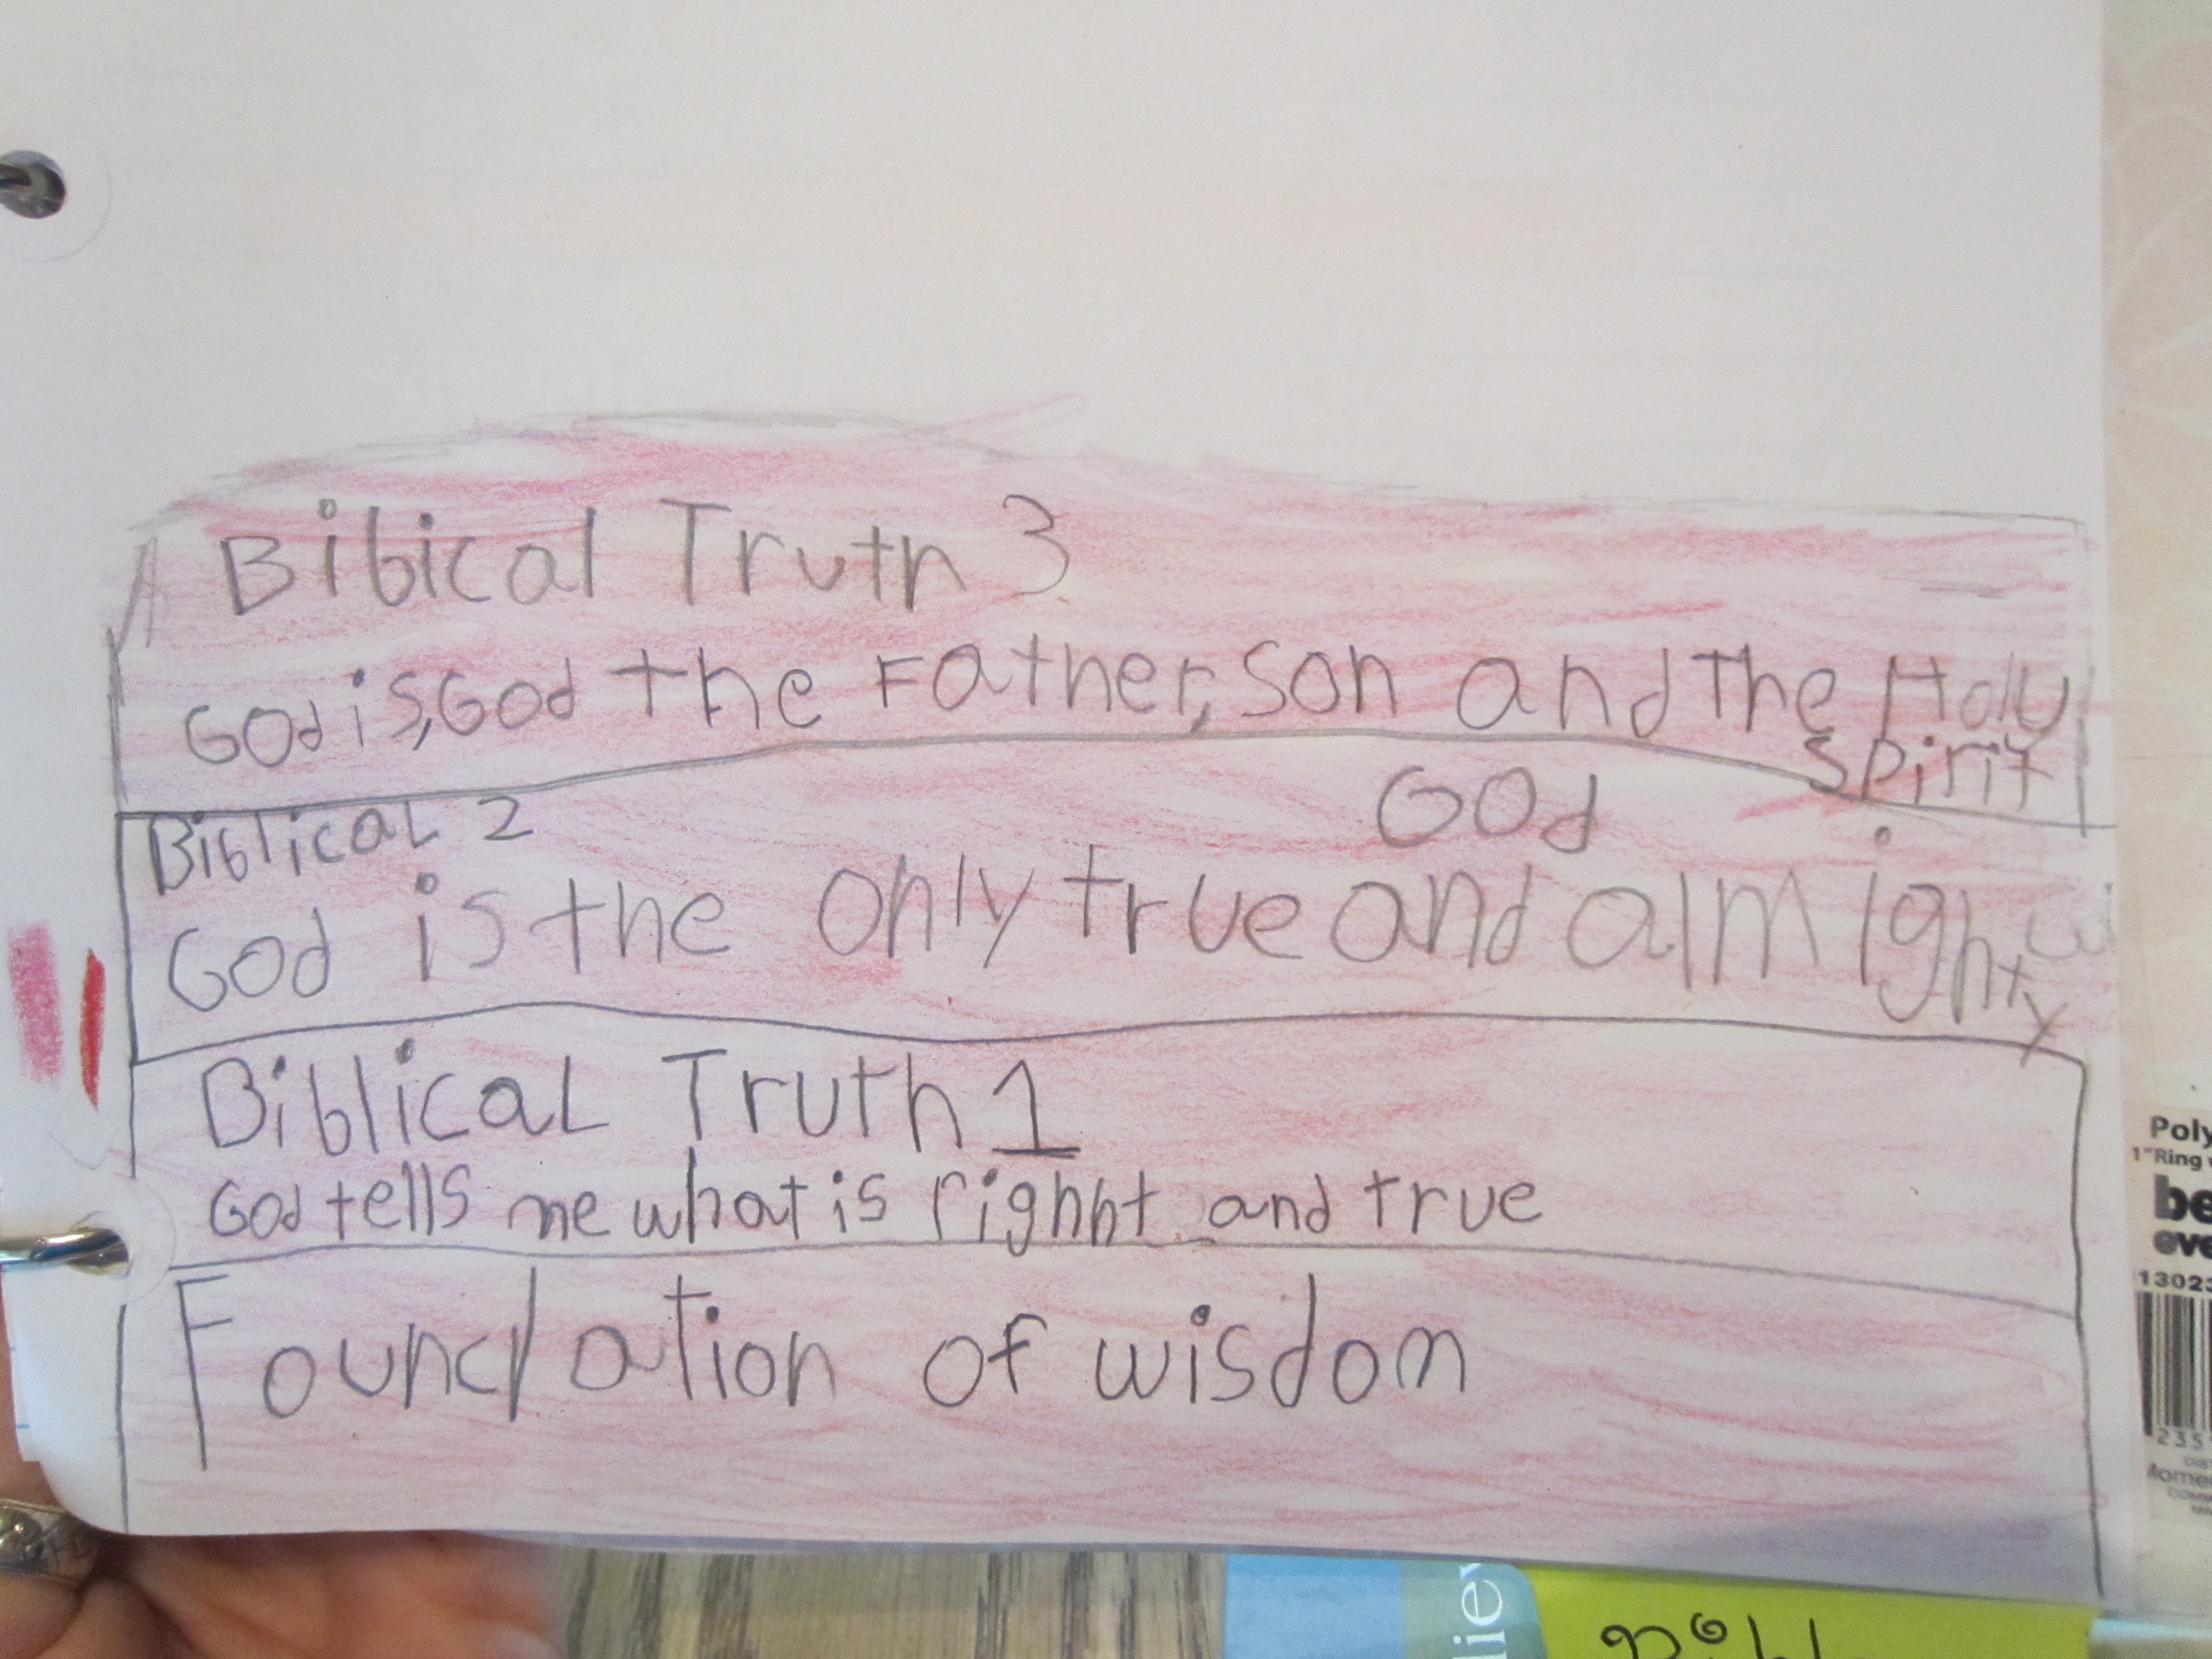 Bibical Truth 3
God is, God the Father, Son and The Holy
Spirit
Biblical 2
God
God is the only true and almighty
Biblical Truth 1
God tells me what is righht and true
Foundation of wisdom
Poly
1" Ring
be
eve
13023
235